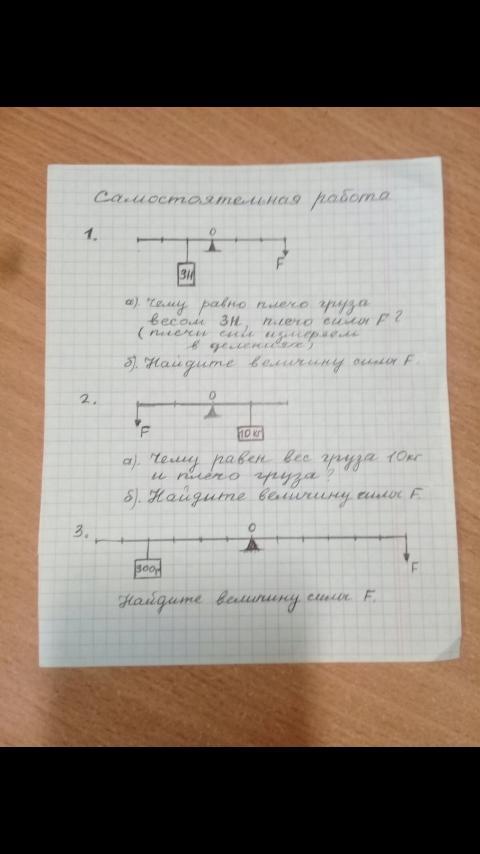 Самостоятельная работа
1.
О
3Н
F
а). Чему равно плечо груза
весом 3Н, плечо силы F?
(плечи сил измеряем
в делениях)
б). Найдите величину силы F.
2.
О
F
10кг
а). Чему равен вес груза 10кг
и плечо груза?
б). Найдите величину силы F.
3.
О
300г
F
Найдите величину силы F.